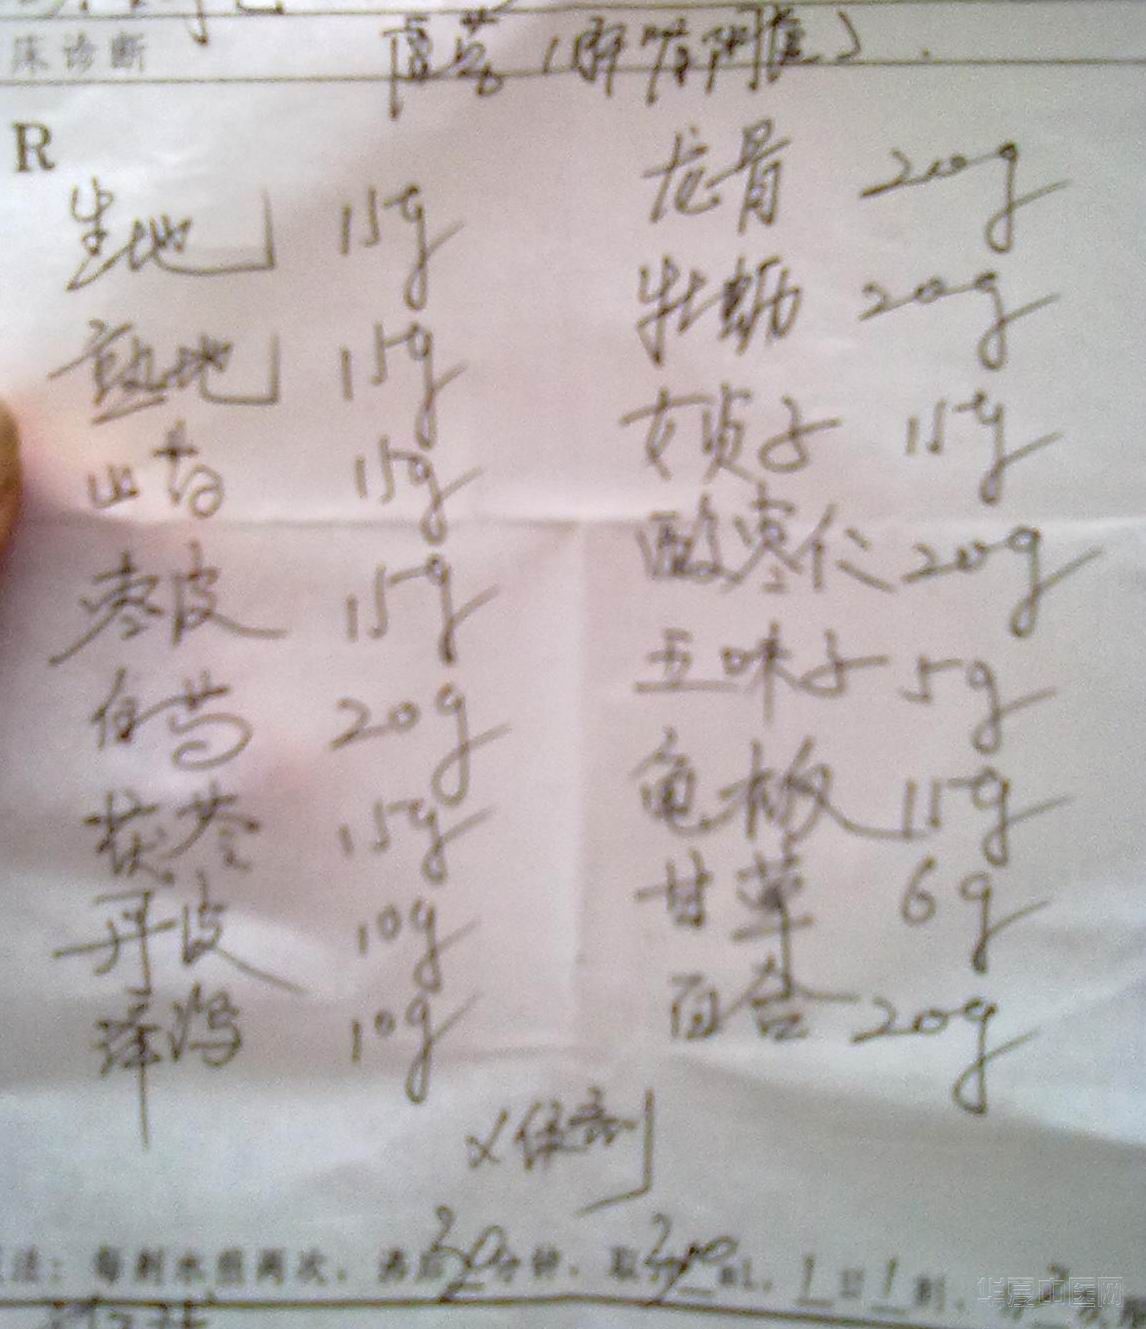 床诊断 虚劳（肝肾阴虚）.
R
生地 15g
熟地 15g
山药 15g
枣皮 15g
白芍 20g
茯苓 15g
丹皮 10g
泽泻 10g
龙骨 20g
牡蛎 20g
女贞子 15g
酸枣仁 20g
五味子 5g
龟板 15g
甘草 6g
百合 20g
法：每剂水煎两次，沸后30分钟，取300mL，1日1剂，
华夏中医网